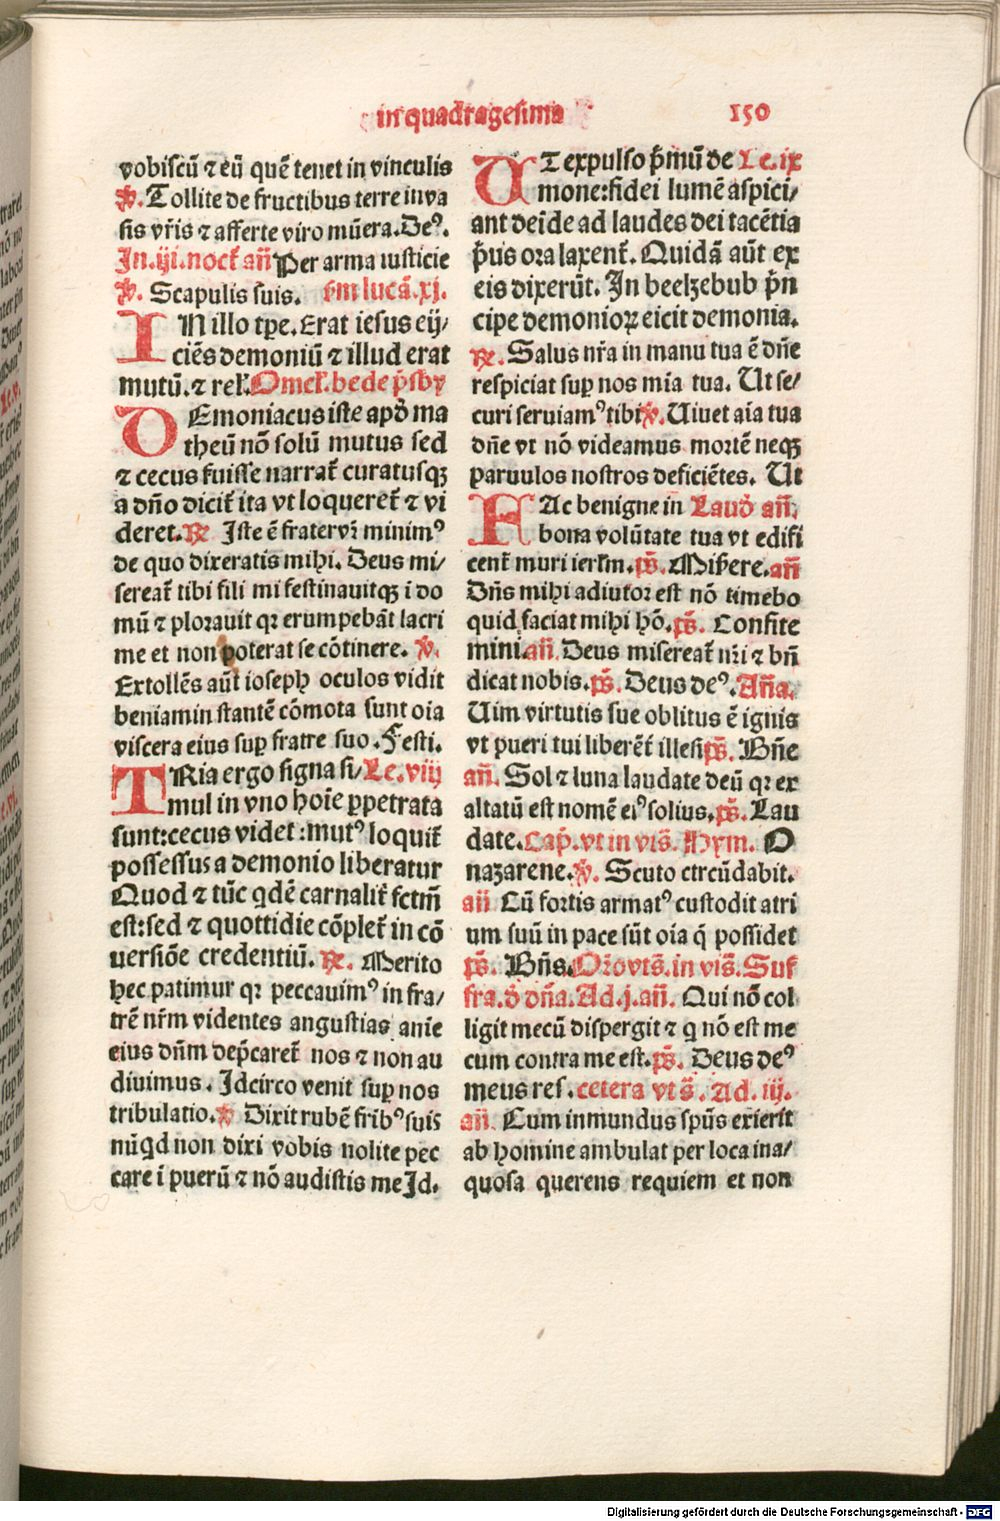 in quadragesima 150
vobiscū ⁊ eū quē tenet in vinculis
℣. Tollite de fructibus terre in va
sis vr̄is ⁊ afferte viro mūera. Deꝰ.
In .iij. noct̄ an̄ Per arma iusticie
℣. Scapulis suis. ẜm lucā .xj.
IN illo tꝑe. Erat iesus eij/
ciēs demoniū ⁊ illud erat
mutū. ⁊ rel̄. Omel̄. bede p̄sby
DEmoniacus iste apđ ma
theū nō solū mutus sed
⁊ cecus fuisse narrat̄ curatusqꝫ
a dn̄o dicit̄ ita vt loqueret̄ ⁊ vi
deret. ℟ Iste ē frater vr̄ minimꝰ
de quo dixeratis mihi. Deus mi/
sereat̄ tibi fili mi festinauitqꝫ i do
mū ⁊ plorauit qꝛ erumpebāt lacri
me et non poterat se cōtinere. ℣.
Extollēs aūt ioseph oculos vidit
beniamin stantē cōmota sunt oīa
viscera eius suꝑ fratre suo. Festi.
TRia ergo signa si/ Le. viij
mul in vno hoīe ꝑpetrata
sunt: cecus videt: mutꝰ loquit̄
possessus a demonio liberatur
Quod ⁊ tūc qdē carnalit̄ fctm̄
est: sed ⁊ quottidie cōplet̄ in cō
uersiōe credentiū. ℟. Merito
hec patimur qꝛ peccauimꝰ in fra/
trē nr̄m videntes angustias anie
eius dn̄m dep̄caret̄ nos ⁊ non au
diuimus. Idcirco venit suꝑ nos
tribulatio. ℣ Dixit rubē fribꝰ suis
nūqd non dixi vobis nolite pec
care ī puerū ⁊ nō audistis me Id.
UT expulso p̄mū de Le. ix
mone: fidei lumē aspici/
ant deīde ad laudes dei tacētia
p̄us ora laxent̄. Quidā aūt ex
eis dixerūt. In beelzebub p̄n
cipe demonioꝝ eicit demonia.
℟. Salus nr̄a in manu tua ē dn̄e
respiciat suꝑ nos mīa tua. Ut se/
curi seruiamꝰ tibi ℣. Uiuet aīa tua
dn̄e vt nō videamus mortē neqꝫ
paruulos nostros deficiētes. Ut
FAc benigne in Laud̄ an̄.
bona volūtate tua vt edifi
cent̄ muri ierlm̄. ps̄. Miẜere. an̄
Dn̄s mihi adiutor est nō timebo
quid faciat mihi hō. ps̄. Confite
mini. an̄. Deus misereat̄ nr̄i ⁊ bn̄
dicat nobis. ps̄. Deus deꝰ. An̄a.
Uim virtutis sue oblitus ē ignis
vt pueri tui liberēt̄ illesi ps̄. Bn̄e
an̄. Sol ⁊ luna laudate deū qꝛ ex
altatū est nomē eiꝰ solius. ps̄. Lau
date. Cap̄. vt in vis̄. Hym. O
nazarene. ℣. Scuto circūdabit.
an̄ Cū fortis armatꝰ custodit atri
um suū in pace sūt oīa q̄ possidet
ps̄. Bn̄s. Or̄o vts̄. in vis̄. Suf
fra. đ dn̄a. Ad .j. an̄. Qui nō col
ligit mecū dispergit ⁊ q nō est me
cum contra me est. ps̄. Deus deꝰ
meus res. cetera vt s̄. Ad .iij.
an̄ Cum inmundus sp̄us exierit
ab homine ambulat per loca ina/
quosa querens requiem et non
Digitalisierung gefördert durch die Deutsche Forschungsgemeinschaft - DFG